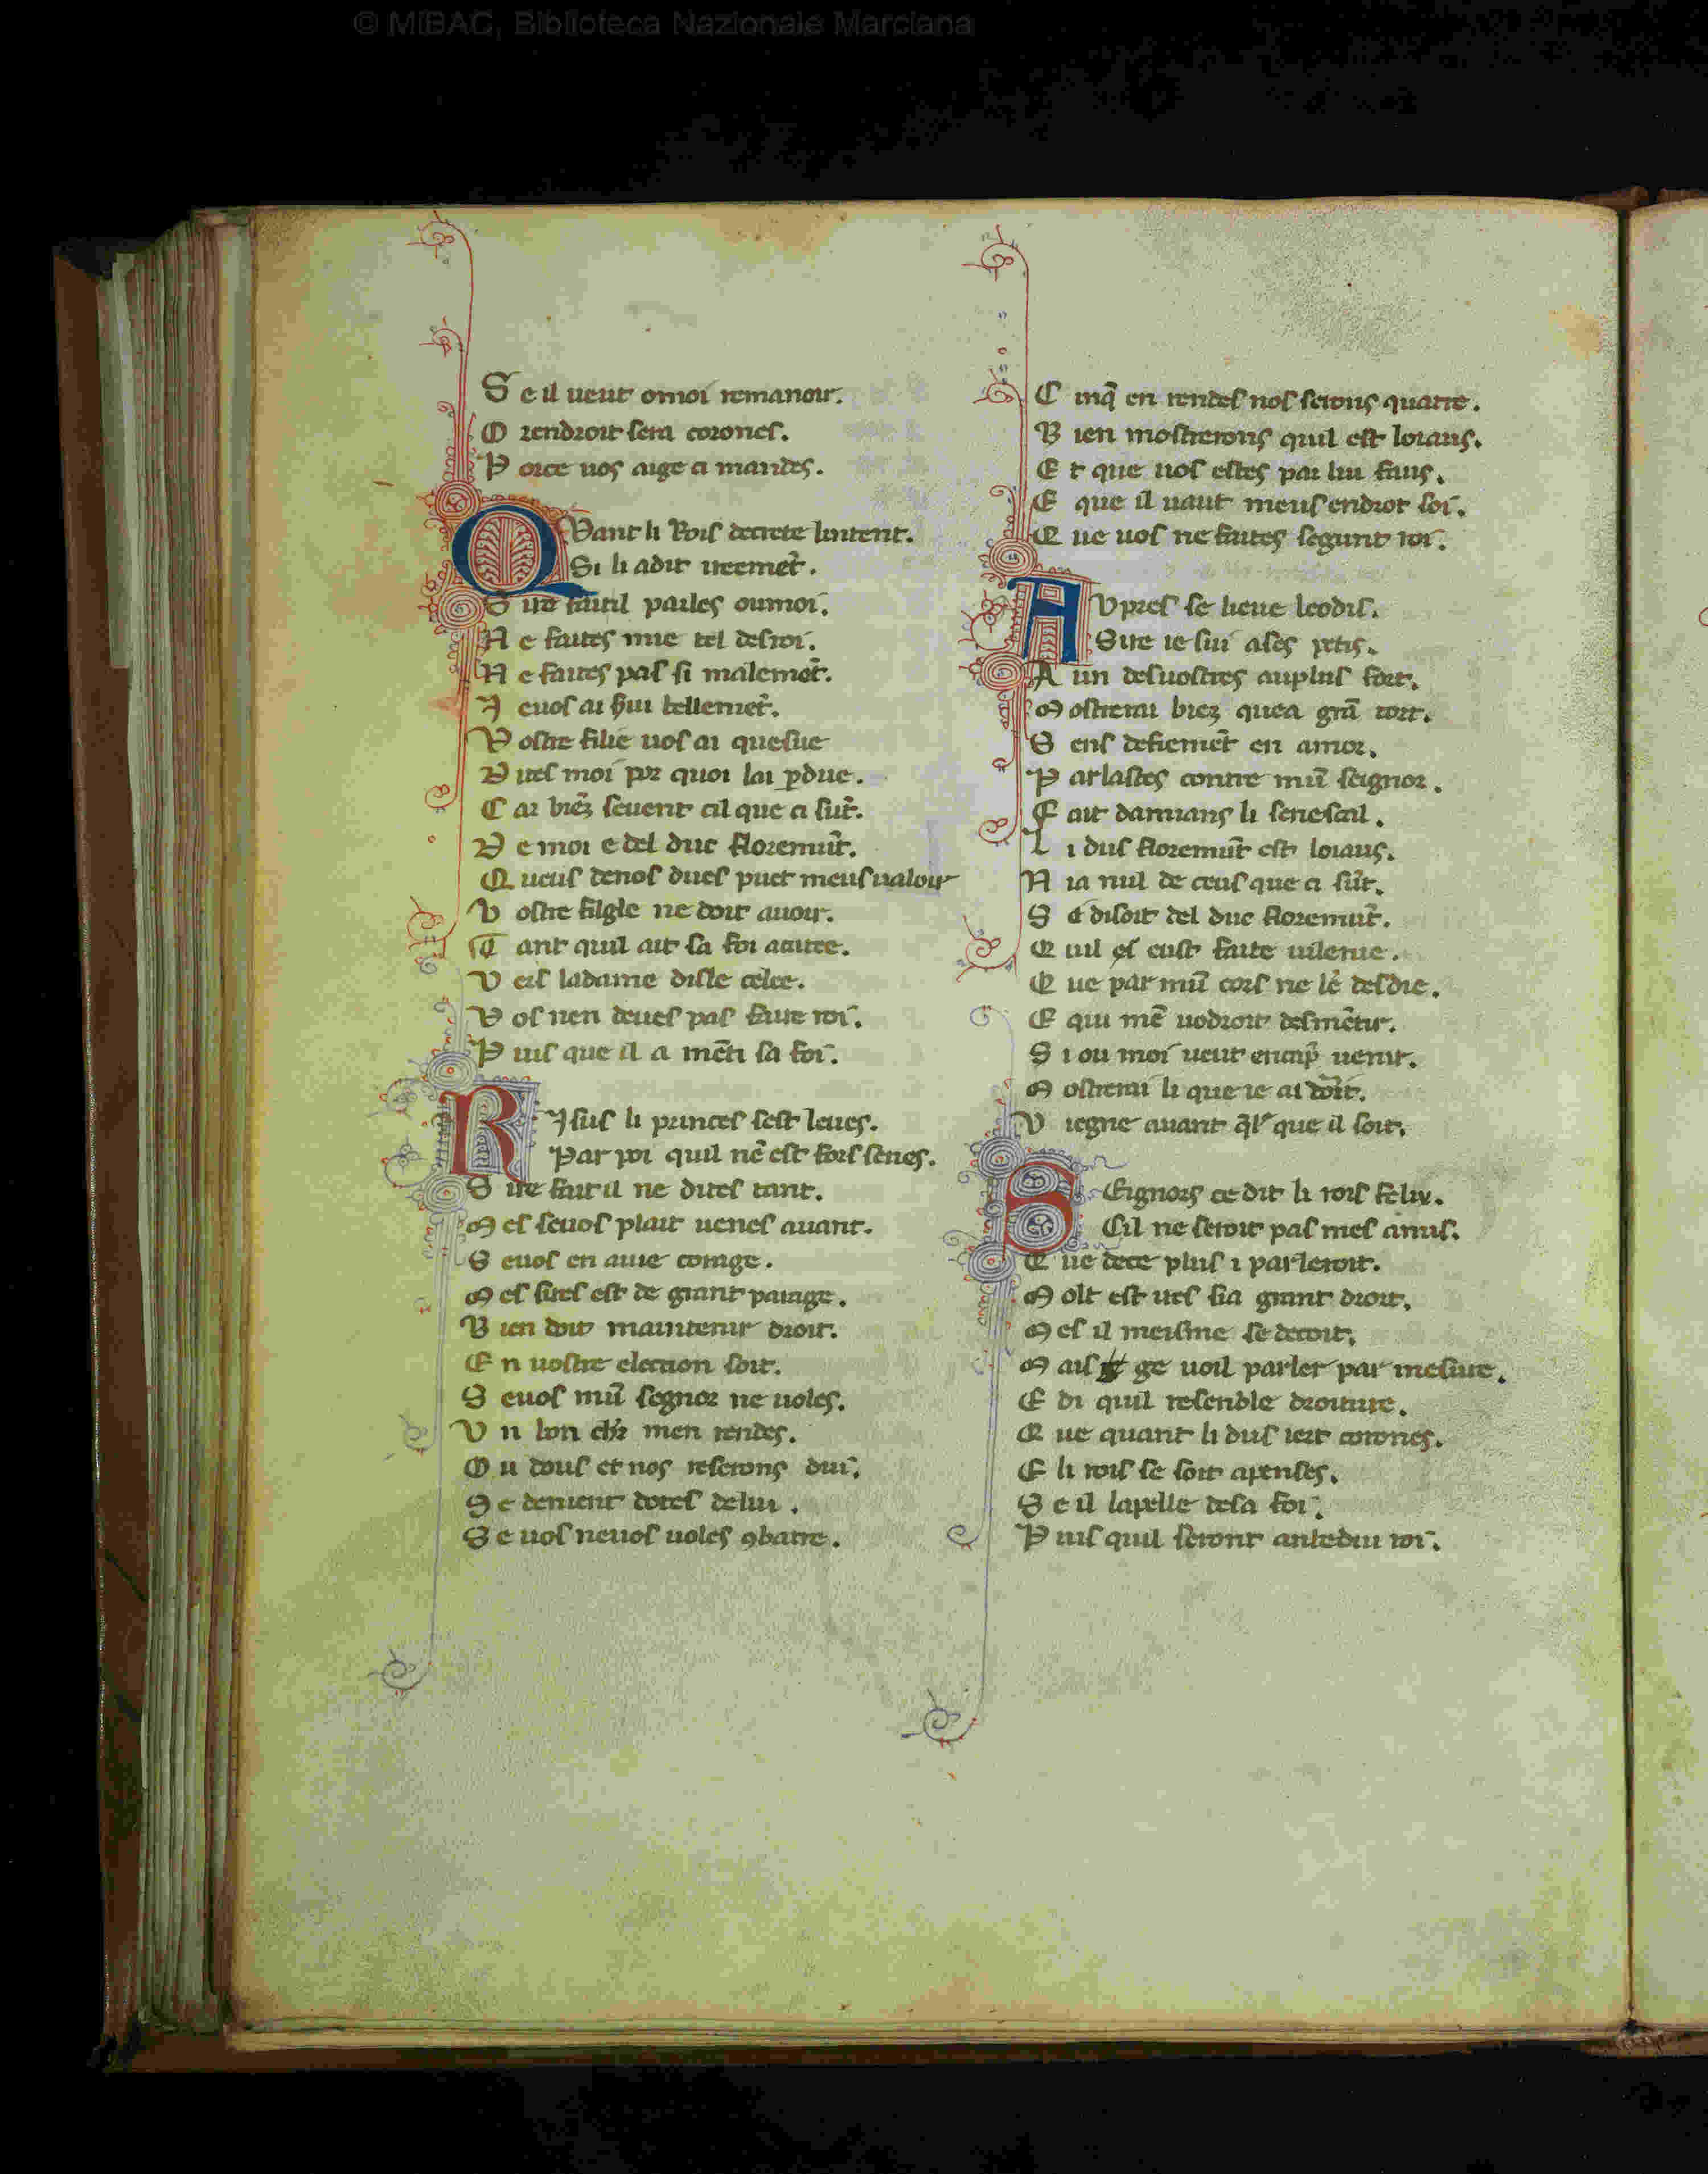 © MiBAC, Biblioteca Nazionale Marciana
S e il ueut o moi remanoir.
O rendroit sera corones.
P orce uos aige ci mandes.
QVant li Rois decrete lintent.
Si li adit ireemēt.
S ire faitil parles oumoi.
N e faites mie tel desroi.
N e faites pas si malemēt.
J euos ai bellemēt.
V ostre filie uos ai quesue
D ites moi por quoi lai ꝑdue.
C ar biēz seuent cil que ci sūt.
D e moi e del duc floremūt.
Q ueus denos dues puet meus ualoir
V ostre filgle ne doit auoir.
T ant quil ait sa foi aitee.
V ers ladame disle celee.
V os nen deues pas faire roi.
P uis que il a mēti sa foi.
RJsus li princes sest leues.
Par poi quil nē est fors senes.
S ire fait il ne dites tant.
M es seuos plait uenes auant.
S euos en auie corage.
M es sires est de grant parage.
B ien doit maintenir droit.
E n uostre election soit.
S euos mū segnor ne uoles.
V n bon chr men rendes.
O u dous et nos reserons dui.
S e dement dotes delui.
S e uos neuos uoles ꝯbatre.
C inq̄ en rendes nos serons quatre.
B ien mostrerons quil est loiaus.
E t que uos estes par lui faus.
E que il uaut meus endrot soi.
Q ue uos ne faites segunt roi.
AVpres se lieue leodis.
Sire ie sui ases petis.
A un desuostres auplus fort.
M osterai briez quea grā tort.
S ens defiemēt en amor.
P arlastes contre mū seignor.
F ait damians li senescal.
L i dus floremūt est loiaus.
N ia nul de ceus que ci sūt.
S e disoit del duc floremūt.
Q uil es eust faite uilenie.
Q ue par mū cors ne lē desdie.
E qui mē uodroit desmētir.
S i ou moi ueut en uenir.
M osterai li que ie ai
V iegne auant que il soit.
SEignors ce dit li rois felix.
Cil ne seroit pas mes amis.
Q ue dece plus i parleroit.
M olt est ues lia grant droit.
M es il meisme se decoit.
M ais ge uoil parler par mesure.
E di quil resenble droiture.
Q ue quant li dus iert corones.
E li rois se soit apenses.
S e il lapelle desa foi.
P uis quil seront anbedui roi.